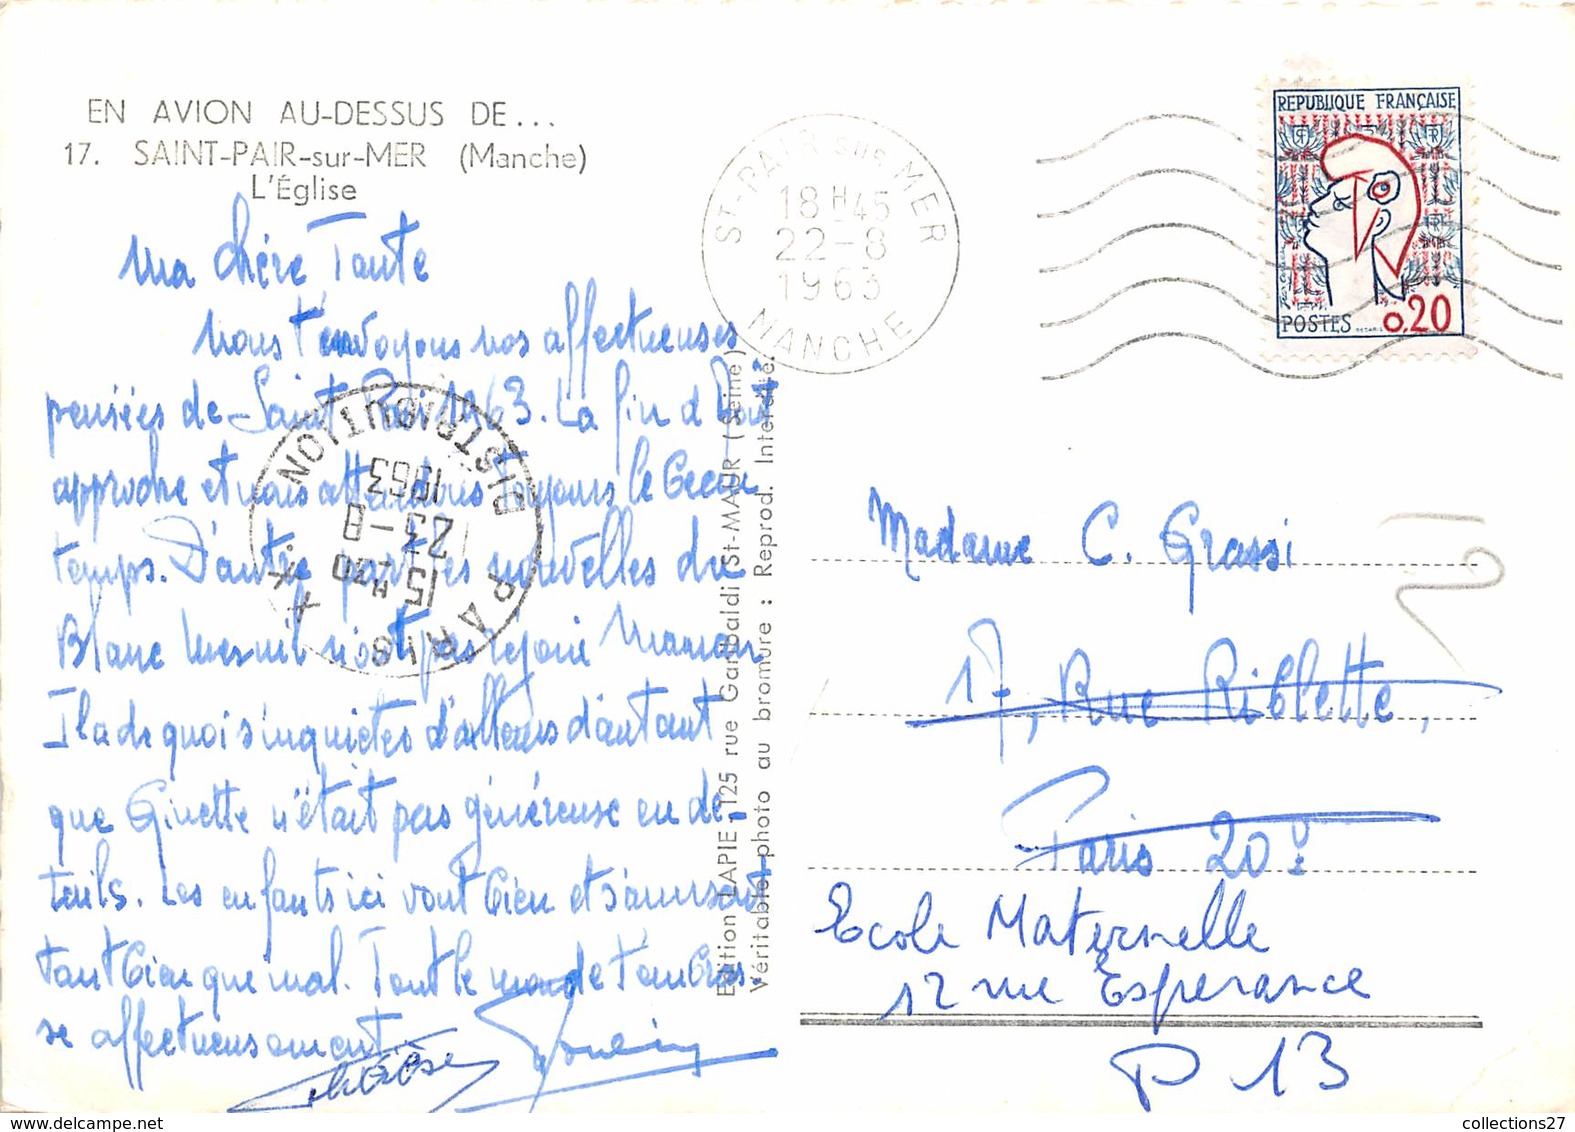 EN AVION AU-DESSUS DE...
17. SAINT-PAIR-sur-MER (Manche)
L'Église
Ma chère Tante
Nous t'envoyons nos affectueuses
pensées de Saint Pair 1963. La fin d'Août
approche et nous attendons toujours le beau
temps. D'autre part les nouvelles du
Blanc Mesnil n'ont pas réjoui Maman
Il a de quoi s'inquiéter d'ailleurs d'autant
que Ginette n'était pas généreuse en dé-
tails. Les enfants ici vont bien et s'amusent
tant bien que mal. Tout le monde t'embras-
se affectueusement
Thérèse
ST-PAIR sur MER
18H45
22-8
1963
MANCHE
PARIS
15H30
23-8
1963
DISTRIBUTION
REPUBLIQUE FRANÇAISE
POSTES 0,20
Edition LAPIE, 125 rue Garibaldi St-MAUR (Seine)
Véritable photo au bromure : Reprod. Interdite.
Madame C. Grassi
17, Rue Riblette,
Paris 20e
Ecole Maternelle
12 rue Esperance
P 13
collections27